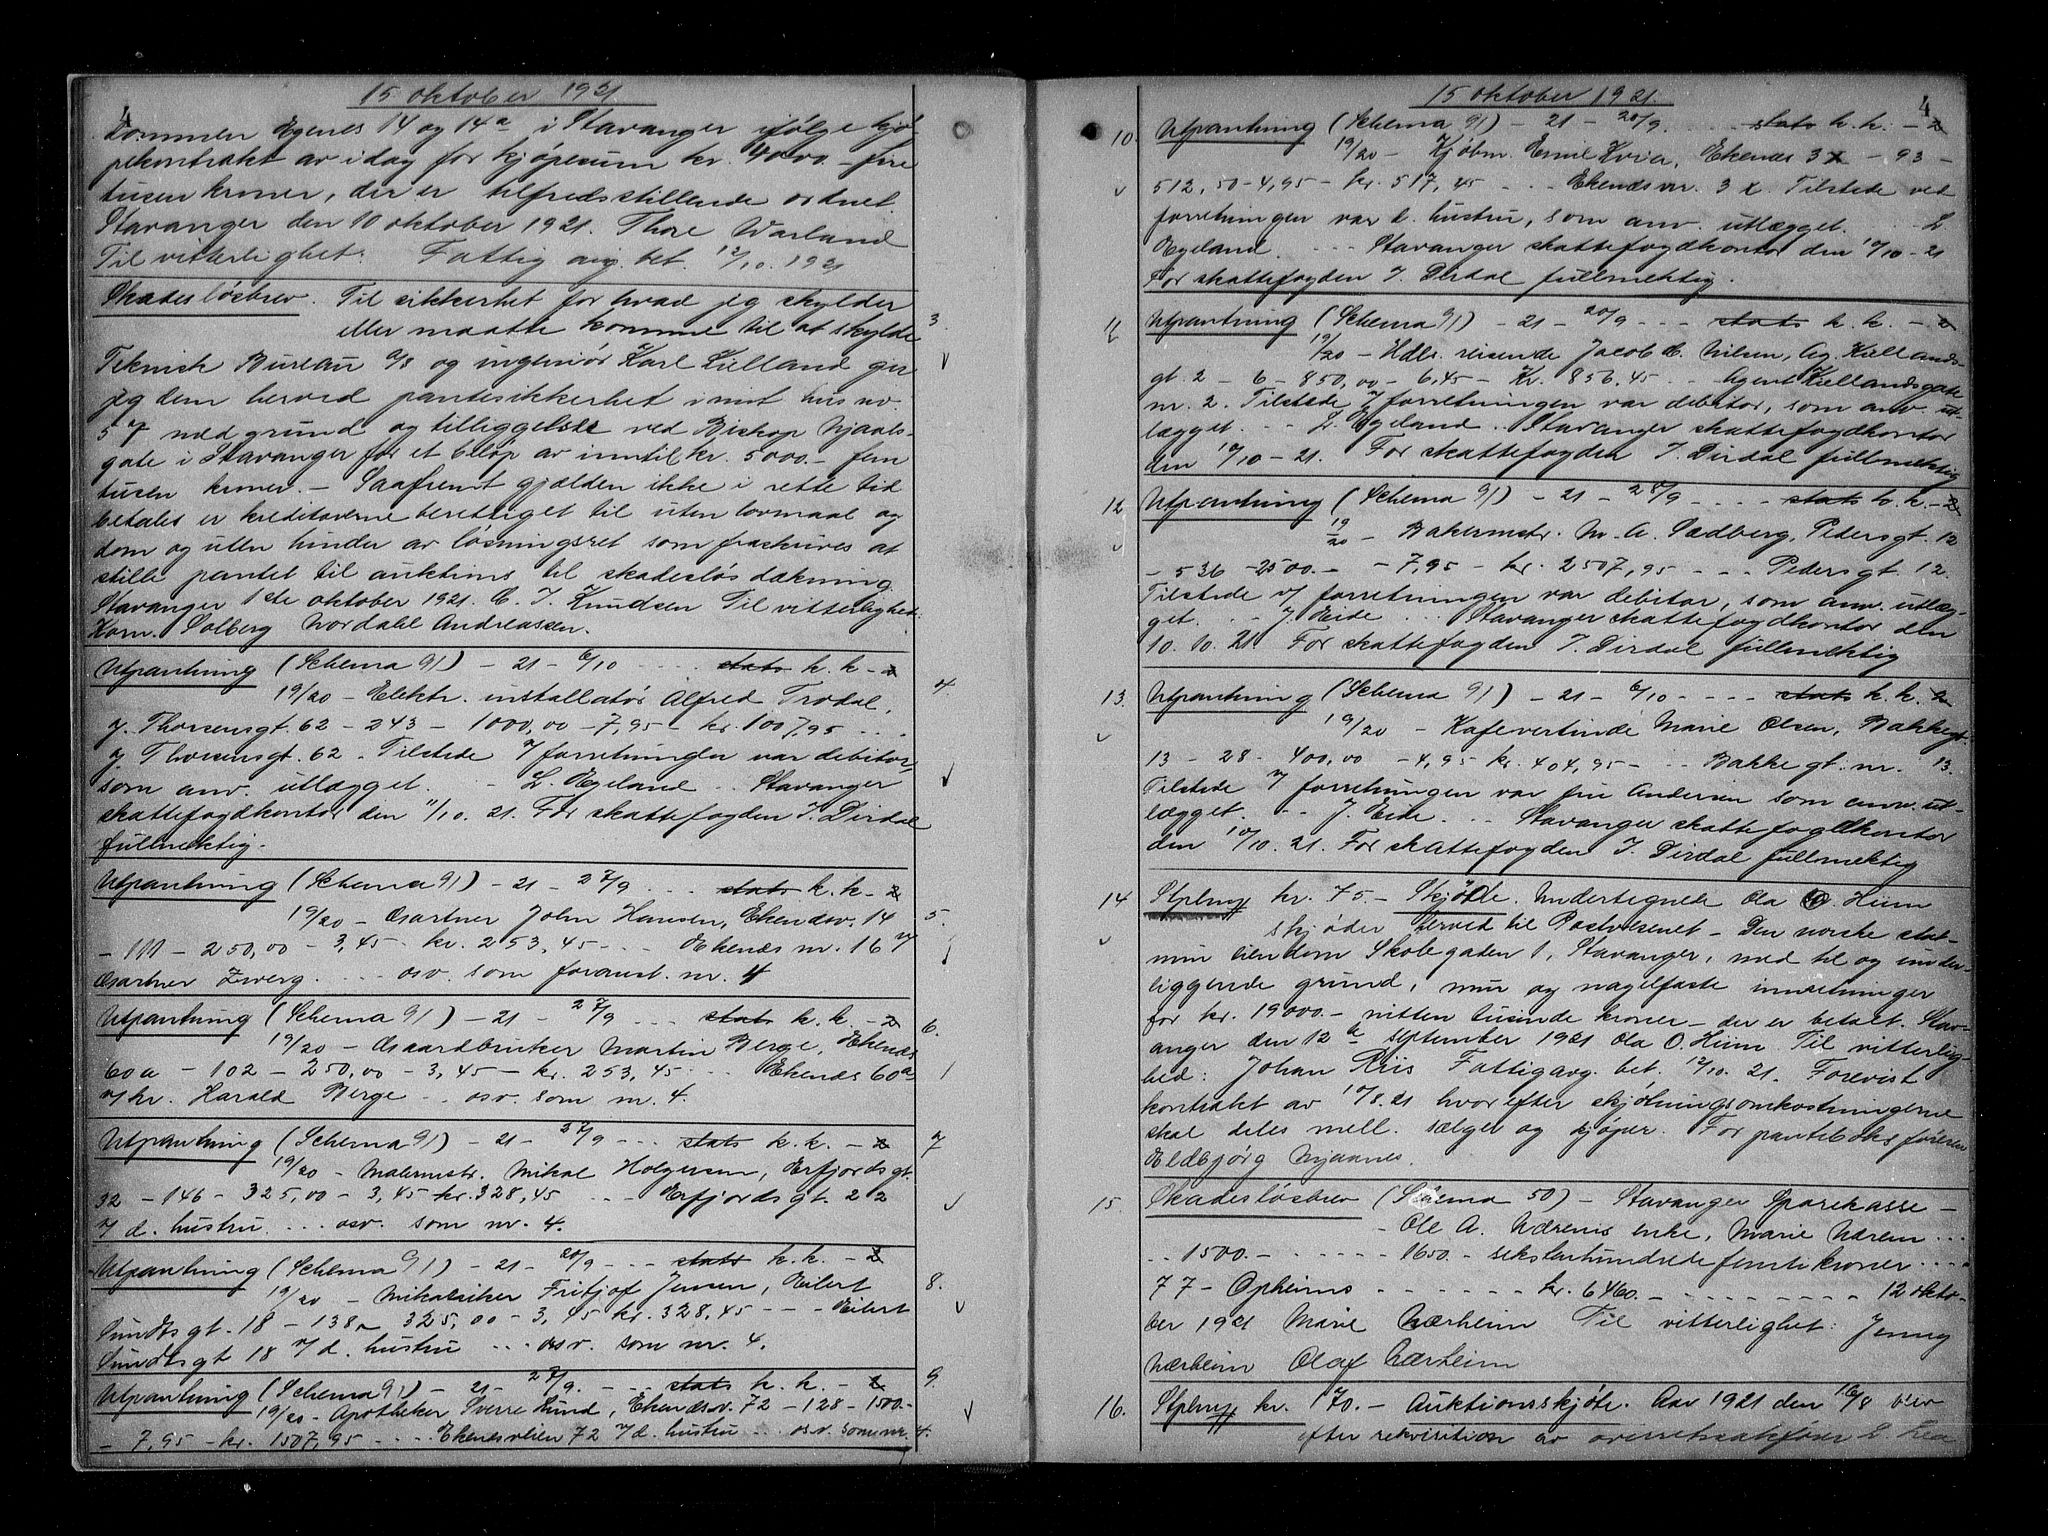 15 oktober 1921.
4
Lommen Egenes 14 og 14a i Stavanger ifølge kjø-
pekontrakt av idag for kjøpesum kr. 4000.- fire
tusen kroner, der er tilfredsstillende ordnet.
Stavanger den 10 oktober 1921. Thore Warland
Til vitterlighet: Fattig avg. bet. 12/10. 1921
Skadesløsbrev. Til sikkerhet for hvad jeg skylder
3.
eller maatte komme til at skylde
Teknisk Bureau a/s og ingeniør Karl Lilland gir
jeg dem herved pantesikkerhet i mit hus nr.
57 med grund og tilliggelse ved Bishop Njaals-
gate i Stavanger for et beløp av inntil kr. 5000.- fem
tusen kroner. - Saafremt gjælden ikke i rette tid
betales er kreditorerne berettiget til uten lovmaal og
dom og uten hinder av løsningsret som fraskrives at
stille pantet til auktions til skadesløs dækning
Stavanger 1ste oktober 1921. C. I. Knudsen Til vitterlighet:
Korn. Solberg Nordahl Andreassen.
Utpantning (Schema 91) - 21 - 6/10 ... stats k. k. - 2
4.
19/20 - Elektr. installatør Alfred Trodal,
J. Thorsensgt. 62 - 243 - 1000,00 - 7,95 - kr. 1007,95 ...
J Thorsensgt. 62. Tilstede v/ forretningen var debitor,
som anv. utlægget. .. L. Egeland .. Stavanger
skattefogdkontor den 11/10. 21. For skattefogden I. Dirdal
fullmektig.
Utpantning (Schema 91) - 21 - 27/9 ... stats k. k. - 2
19/20 - Gartner John Hansen, Ekenesv. 14
5.
- 111 - 250,00 - 3,45 - kr. 253,45 - .. Ekenæs nr. 16 v/
Gartner Zwerg. .... osv. som foranst. nr. 4
Utpantning (Schema 91) - 21 - 27/9 ... stats k. k. - 2
6.
19/20 - Gaardbruker Martin Berge, Ekenæs
60a - 102 - 250,00 - 3,45 - kr. 253,45 ... Ekenæs 60a
v/ hr. Harald Berge .. osv. som nr. 4.
Utpantning (Schema 91) - 21 - 27/9 ... stats k. k. - 2
7
19/20 - Malermstr. Mikal Holgersen, Erfjordsgt.
32 - 146 - 325,00 - 3,45 kr. 328,45 ... Erfjordsgt. 22
v/ d. hustru ... osv. som nr. 4.
Utpantning (Schema 91) - 21 - 20/9 ... stats k. k. - 2
8.
19/20 - Fritjof Jensen, Eilert
Sundtsgt. 18 - 138 - 325,00 - 3,45 kr. 328,45 - - Eilert
Sundtsgt 18 v/ d. hustru ... osv. som nr. 4.
Utpantning (Schema 91) - 21 - 27/9. - . stats k. k. - 2
9.
19/20 - Apotheker Sverre Lund, Ekenæsv. 72 - 128 - 1500.-
- 7,95 - kr. 1507,95 - ... Ekenesveien 72 v/ d. hustru ... osv. som nr. 4.
15 oktober 1921.
4
10. Utpantning (Schema 91) - 21 - 20/9 .... stats k. k. - 2
19/20 - Kjøbm. Emil Kvia, Ekenæs 3x - 93 -
512,50 - 4,95 - kr. 517,45 ... Ekenæsvr. 3 x. Tilstede ved
forretningen var d. hustru, som anv. utlægget. .. L
Egeland. ... Stavanger skattefogdkontor den 10/10 - 21
For skattefogden I. Dirdal fullmektig.
11 Utpantning (Schema 91) - 21 - 20/9 ... stats k. k. - 2
19/20 - Hdls. reisende Jacob C. Nilsen, Ag. Kiellands-
gt. 2 - 6 - 850,00 - 6,45 - Kr. 856,45 .. Agent Kiellandsgate
nr. 2. Tilstede v/ forretningen var debitor, som anv. ut-
lægget. .. L. Egeland. Stavanger skattefogdkontor
den 10/10 - 21. For skattefogden I. Dirdal fullmektig
12 Utpantning (Schema 91) - 21 - 28/9 ... stats k. k. - 2
19/20 - Bakermstr. M. A. Sædberg, Pedersgt. 12
- 536 - 2500.- - 7,95 - kr. 2507,95 - - - Pedersgt. 12.
Tilstede v/ forretningen var debitor, som anv. utlæg-
get. .. J. Eide ... Stavanger skattefogdkontor den
10. 10. 21. For skattefogden I. Dirdal fullmektig
13. Utpantning (Schema 91) - 21 - 6/10 - ... stats k. k. 2
19/20 - Kafevertinde Marie Olsen, Bakkegt.
13 - 28 - 400,00 - 4,95 kr. 404,95 - .. Bakkegt. nr. 13.
Tilstede v/ forretningen var fru Andersen som anv. ut-
lægget. .. J. Eide ... Stavanger skattefogdkontor
den 10/10. 21. For skattefogden I. Dirdal fullmektig
14 kr. 75.- Skjøde. Undertegnede Ola O. Heim
skjøder herved til Postvæsenet - Den norske stat -
min eiendom Skolegaden 1, Stavanger, med til og under-
liggende grund, mur og nagelfaste innretninger
for kr. 19000.- nitten tusinde kroner - der er betalt. Stav-
anger den 12te september 1921 Ola O. Heim Til vitterlig-
hed: Johan Riis Fattigavg. bet. 12/10. 21. Forevist
kontrakt av 10/8. 21 hvorefter skjøtningsomkostningerne
skal deles mell. sælger og kjøper. For pantebokføreren
Eldbjørg Mjaanes.
15. Skadesløsbrev (Schema 50) - Stavanger Sparekasse -
- Ole A. Nærems enke, Marie Nærem ...
.. 1500.- - - - - - 1650.- sekstenhundredefemtikroner ....
77 - Opheims - - - - - - kr. 6460.- - - - - - - - - 12 okto-
ber 1921 Marie Nærheim Til vitterlighet: Jenny
Nærheim Olaf Nærheim
16. kr. 170.- Auktionsskjøte. Aar 1921 den 16/8 blev
efter rekvisition av overretssakfører L. Lea